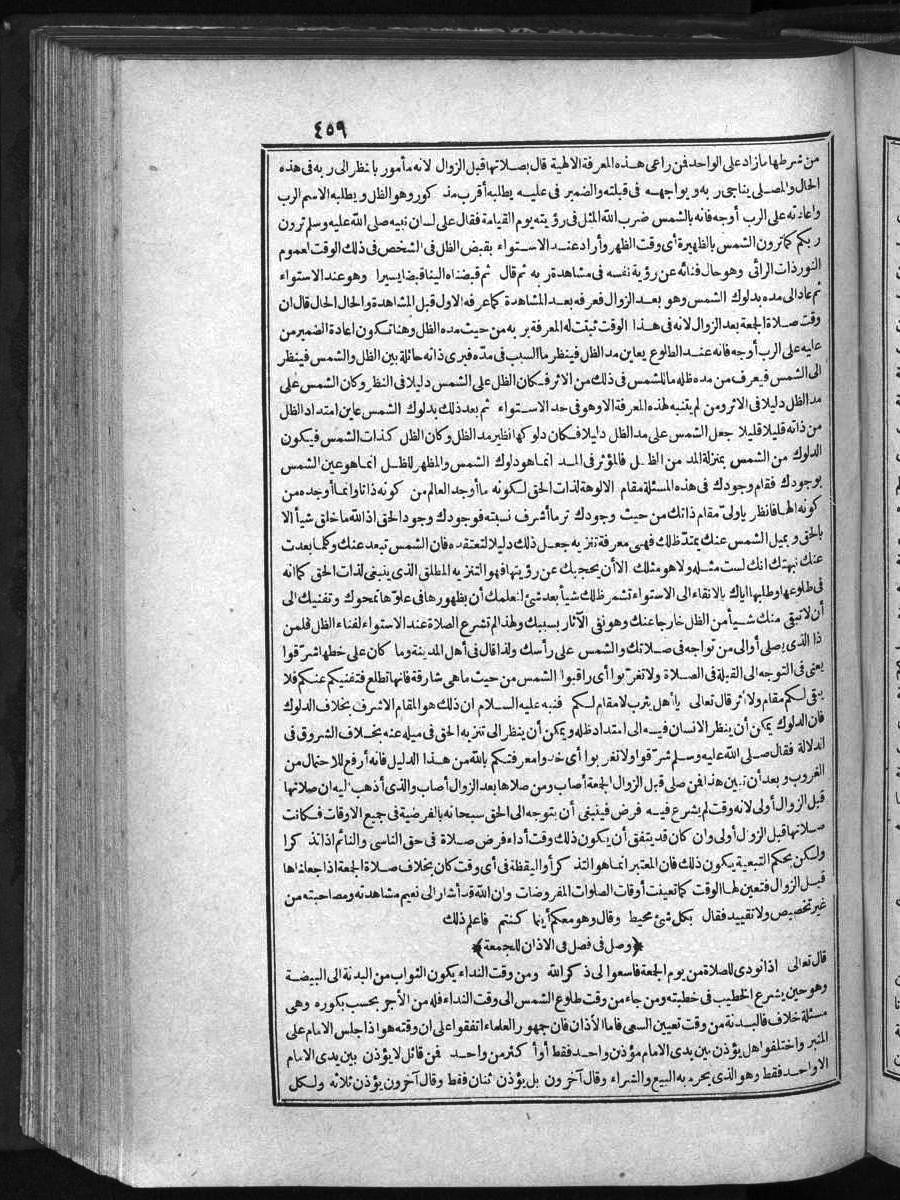 ٤٥٩
من شرطها ما زاد على الواحد فمن راعى هذه المعرفة الالهية قال بصلاتها قبل الزوال لانه مأمور بالنظر الى ربه فى هذه
الحال والمصلى يناجى ربه ويواجهه فى قبلته والضمير فى عليه يطلبه أقرب مذكور وهو الظل ويطلبه الاسم الرب
واعادته على الرب أوجه فانه بالشمس ضرب الله المثل فى رؤيته يوم القيامة فقال على لسان نبيه صلى الله عليه وسلم ترون
ربكم كما ترون الشمس بالظهيرة أى وقت الظهر وأراد عند الاستواء بقبض الظل فى الشخص فى ذلك الوقت لعموم
النور ذات الرائى وهو حال فنائه عن رؤية نفسه فى مشاهدة ربه ثم قال ثم قبضناه الينا قبضا يسيرا وهو عند الاستواء
ثم عاد الى مده بدلوك الشمس وهو بعد الزوال فعرفه بعد المشاهدة كما عرفه الاول قبل المشاهدة والحال الحال قال ان
وقت صلاة الجمعة بعد الزوال لانه فى هذا الوقت ثبتت له المعرفة بربه من حيث مده الظل وهنا تكون اعادة الضمير من
عليه على الرب أوجه فانه عند الطلوع يعاين مد الظل فينظر ما السبب فى مدّه فيرى ذاته حائلة بين الظل والشمس فينظر
الى الشمس فيعرف من مده ظله ما للشمس فى ذلك من الاثر فكان الظل على الشمس دليلا فى النظر وكان الشمس على
مد الظل دليلا فى الاثر ومن لم يتنبه لهذه المعرفة الا وهو فى حد الاستواء ثم بعد ذلك بدلوك الشمس عاين امتداد الظل
من ذاته قليلا قليلا جعل الشمس على مد الظل دليلا فكان دلوكها نظير مد الظل وكان الظل كذات الشمس فيكون
الدلوك من الشمس بمنزلة المد من الظل فالمؤثر فى المد انما هو دلوك الشمس والمظهر للظل انما هو عين الشمس
بوجودك فقام وجودك فى هذه المسئلة مقام الالوهة لذات الحق لكونه ما أوجد العالم من كونه ذاتا وانما أوجده من
كونه الها فانظر يا ولىّ مقام ذاتك من حيث وجودك تر ما أشرف نسبته فوجودك وجود الحق اذ الله ما خلق شيأ الا
بالحق وبميل الشمس عنك يمتدّ ظلك فهى معرفة تنزيه جعل ذلك دليلا لتعتقده فان الشمس تبعد عنك وكلما بعدت
عنك نبهتك انك لست مثله ولا هو مثلك الا أن يحجبك عن رؤيتها فهو التنزيه المطلق الذى ينبغى لذات الحق كما انه
فى طلوعها وطلبها اياك بالارتقاء الى الاستواء تشمر ظلك شيأ بعد شئ لتعلمك أن بظهورها فى علوّها تمحوك وتفنيك الى
أن لا تبقى منك شيأ من الظل خارجا عنك وهو نفى الآثار بسببك ولهذا لم تشرع الصلاة عند الاستواء لفناء الظل فلمن
ذا الذى يصلى أو الى من تواجه فى صلاتك والشمس على رأسك ولذا قال فى أهل المدينة وما كان على خطها شرّقوا
يعنى فى التوجه الى القبلة فى الصلاة ولا تغرّبوا أى راقبوا الشمس من حيث ما هى شارقة فانها تطلع فتفنيكم عنكم فلا
يبقى لكم مقام ولا أثر قال تعالى يا أهل يثرب لا مقام لكم فنبه عليه السلام ان ذلك هو المقام الاشرف بخلاف الدلوك
فان الدلوك يمكن أن ينظر الانسان فيه الى امتداد ظله ويمكن أن ينظر الى تنزيه الحق فى ميله عنه بخلاف الشروق فى
الدلالة فقال صلى الله عليه وسلم شرّقوا ولا تغربوا أى خذوا معرفتكم بالله من هذا الدليل فانه أرفع للاحتمال من
الغروب وبعد أن تبين هذا فمن صلى قبل الزوال الجمعة أصاب ومن صلاها بعد الزوال أصاب والذى أذهب اليه ان صلاتها
قبل الزوال أولى لانه وقت لم يشرع فيه فرض فينبغى أن يتوجه الى الحق سبحانه بالفرضية فى جميع الاوقات فكانت
صلاتها قبل الزوال أولى وان كان قد يتفق أن يكون ذلك وقت أداء فرض صلاة فى حق الناسى والنائم اذا تذكرا
ولكن بحكم التبعية يكون ذلك فان المعتبر انما هو التذكر أو اليقظة فى أى وقت كان بخلاف صلاة الجمعة اذا جعلناها
قبل الزوال فتعين لها الوقت كما تعينت أوقات الصلوات المفروضات وان الله قد أشار الى نعيم مشاهدته ومصاحبته من
غير تخصيص ولا تقييد فقال بكل شئ محيط وقال وهو معكم أينما كنتم فاعلم ذلك
﴿وصل فى فصل فى الاذان للجمعة﴾
قال تعالى اذا نودى للصلاة من يوم الجمعة فاسعوا الى ذكر الله ومن وقت النداء يكون الثواب من البدنة الى البيضة
وهو حين يشرع الخطيب فى خطبته ومن جاء من وقت طلوع الشمس الى وقت النداء فله من الأجر بحسب بكوره وهى
مسئلة خلاف فالبدنة من وقت تعيين السعى فاما الأذان فان جمهور العلماء اتفقوا على ان وقته هو اذا جلس الامام على
المنبر واختلفوا هل يؤذن بين يدى الامام مؤذن واحد فقط أو أكثر من واحد فمن قائل لا يؤذن بين يدى الامام
الا واحد فقط وهو الذى يحرم به البيع والشراء وقال آخرون بل يؤذن ثنان فقط وقال آخرون يؤذن ثلاثة ولكل